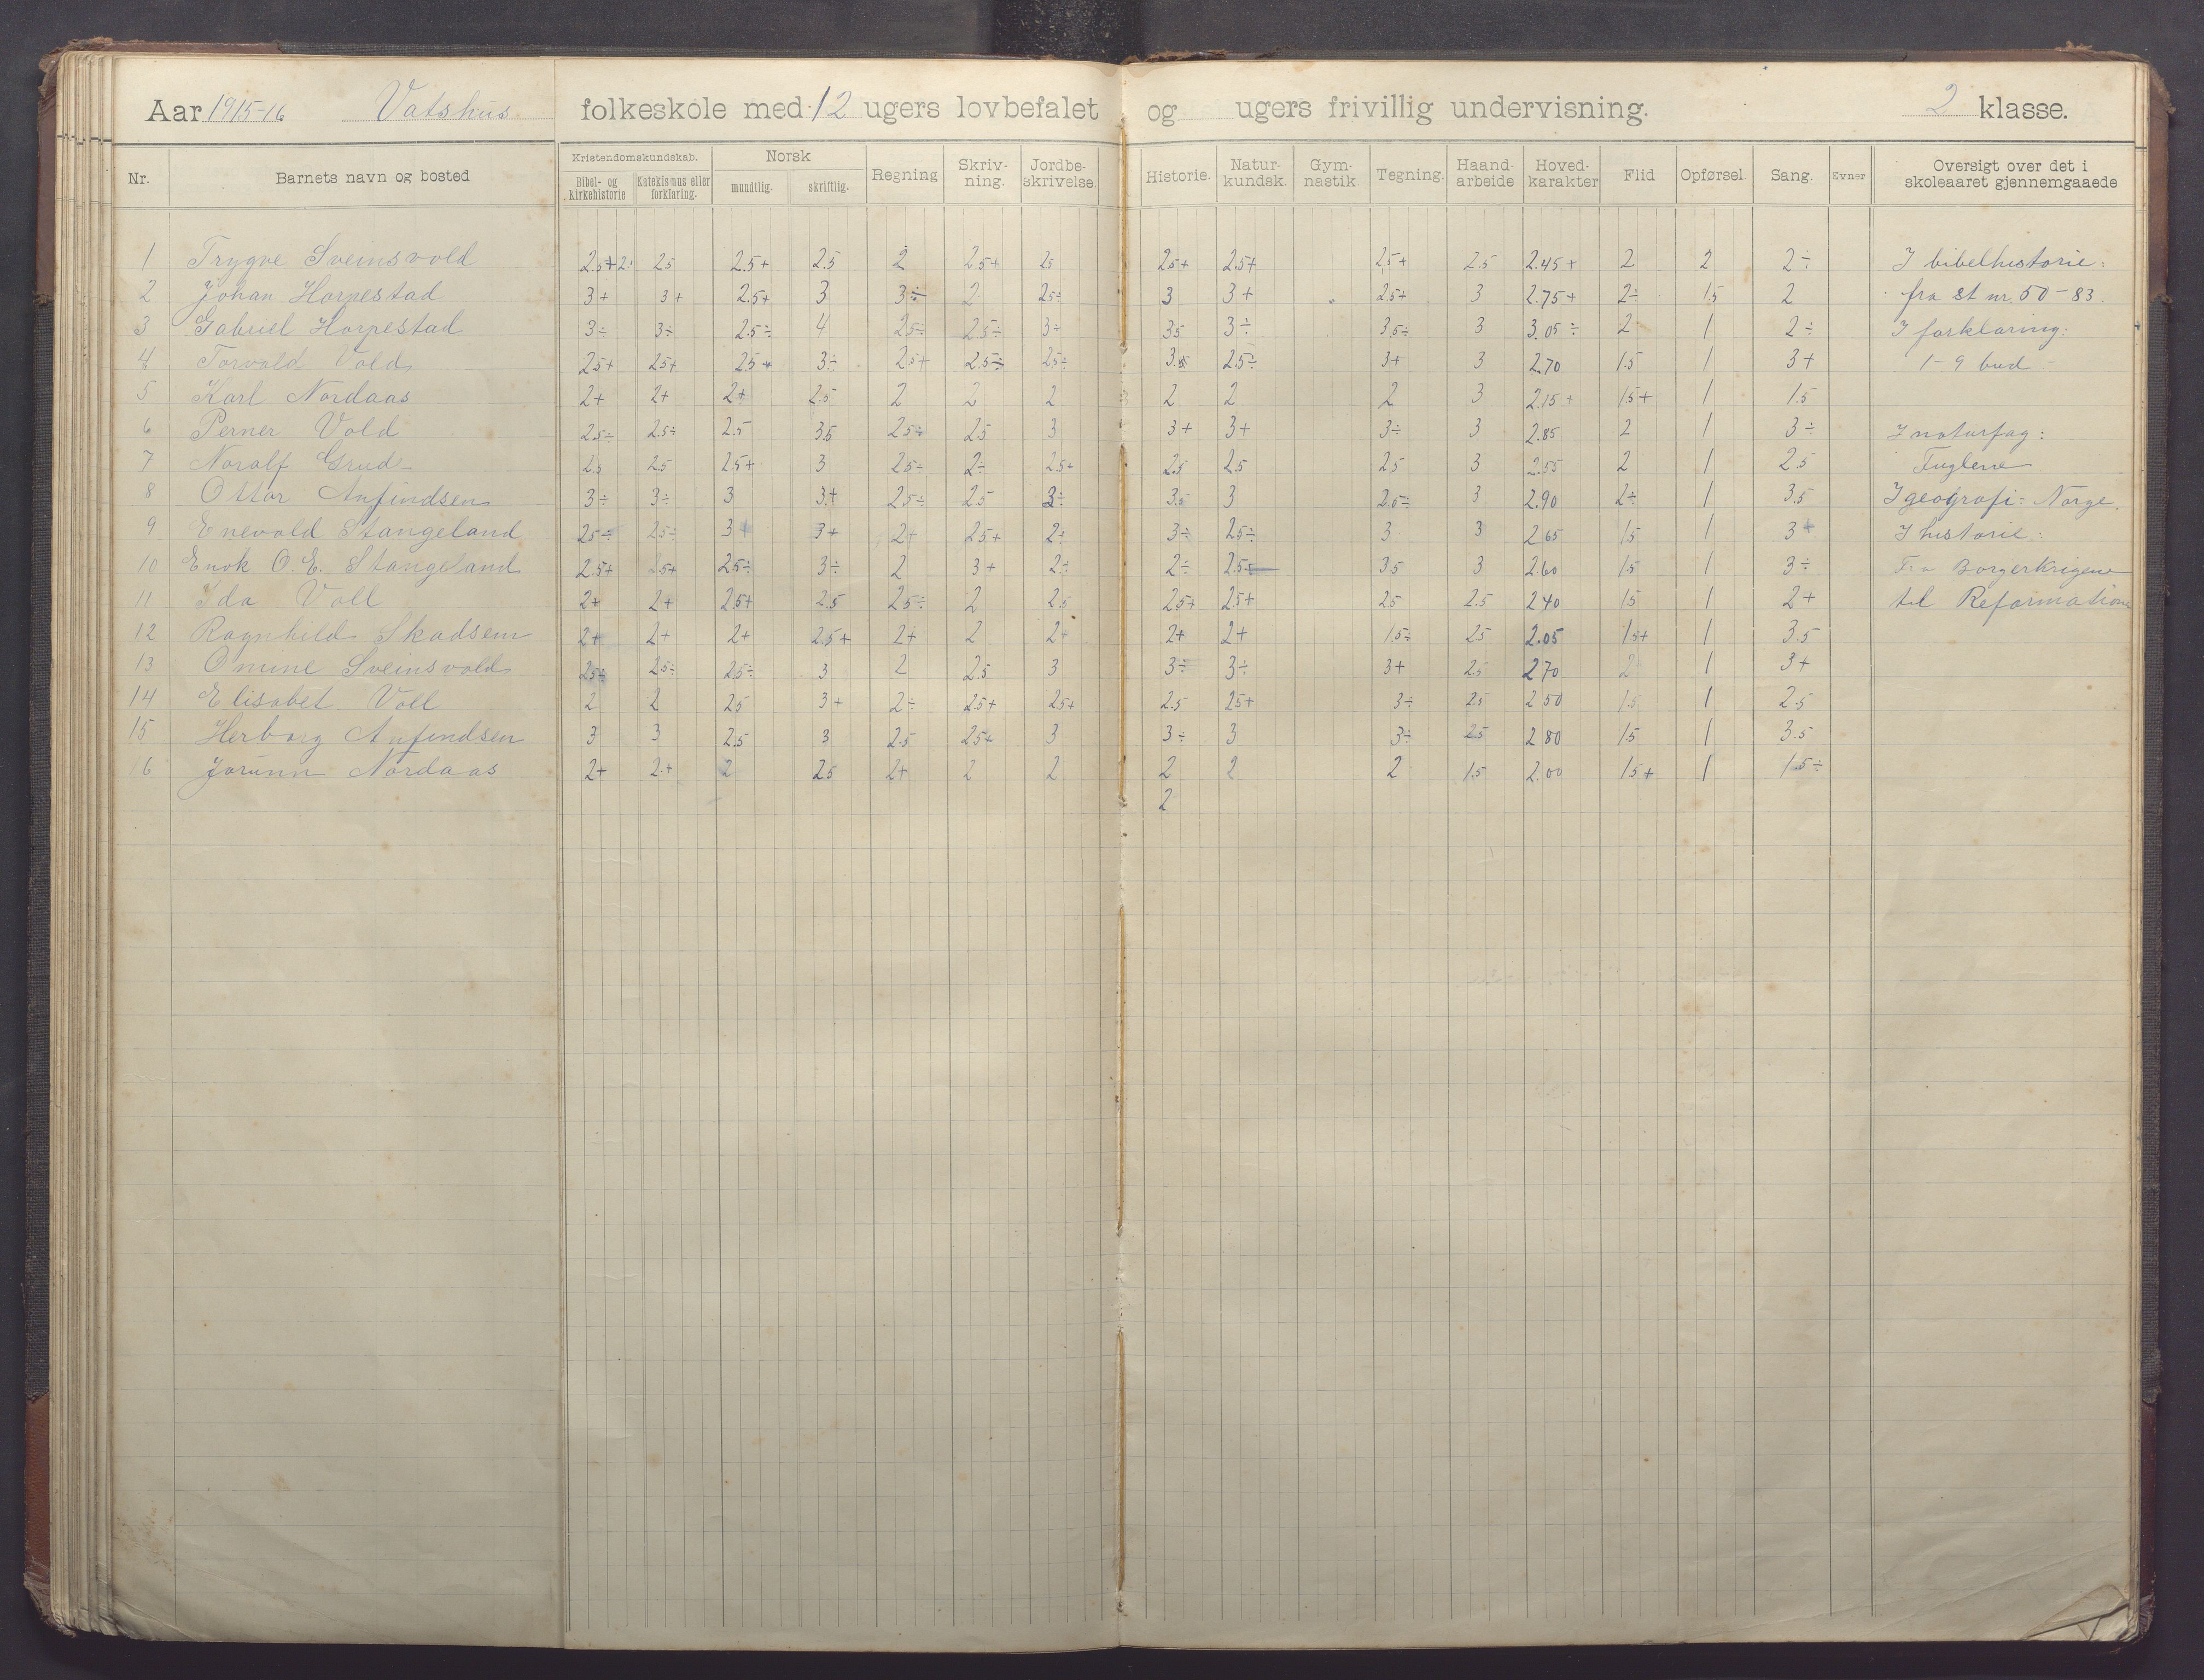 Aar 1915-16 Vatshus folkeskole med 12 ugers lovbefalet og ugers frivillig undervisning. 2 klasse.
Nr. Barnets navn og bosted Kristendomskundskab. Bibel- og kirkehistorie Katekismus eller forklaring. Norsk mundtlig. skriftlig. Regning Skriv-ning. Jordbe-skrivelse. Historie. Natur-kundsk. Gym-nastik Tegning. Haand-arbeide Hoved-karakter Flid Opførsel Sang. Evner Oversigt over det i skoleaaret gjennemgaaede
1 Trygve Sveinsvold 2.5+ 2.5 2.5+ 2.5 2 2.5+ 25 25+ 2.5+ 2.5+ 2.5 2.45+ 2 2 2÷ I bibelhistorie:
2 Johan Horpestad 3+ 3+ 2.5+ 3 3÷ 2 25÷ 3 3+ 25+ 3 2.75+ 2÷ 1.5 2 fra st nr. 50-83
3 Gabriel Horpestad 3÷ 3÷ 2.5÷ 4 25÷ 2.5÷ 3÷ 35 3÷ 35÷ 3 3.05÷ 2 1 2÷ I forklaring:
4 Torvald Vold 25+ 25+ 25+ 3÷ 2.5+ 2.5÷ 25÷ 3.5 25÷ 3+ 3 2.70 1.5 1 3+ 1-9 bud
5 Karl Nordaas 2+ 2+ 2+ 2.5 2 2 2 2 2 2 3 2.15+ 15+ 1 1.5
6 Perner Vold 25÷ 2.5÷ 2.5 3.5 25÷ 25 3 3+ 3+ 3÷ 3 2.85 2 1 3÷ I naturfag:
7 Noralf Grude 2.5 25 25+ 3 25÷ 2÷ 25+ 25 2.5 25 3 2.55 2 1 2.5 Fuglene
8 Ottar Anfindsen 3÷ 3÷ 3 3+ 25÷ 25 3÷ 3.5 3 2.5÷ 3 2.90 2÷ 1 3.5 I geografi: Norge.
9 Enevald Stangeland 25÷ 25÷ 3+ 3+ 2+ 25+ 2÷ 3÷ 25÷ 3 3 2 65 15 1 3+ I historie:
10 Enok O. E. Stangeland 2.5+ 2.5+ 25÷ 3÷ 2 3+ 2÷ 2÷ 2.5÷ 35 3 2.60 1.5 1 3÷ Fra Borgerkrigene
11 Ida Voll 2+ 2+ 25+ 2.5 25÷ 2 2.5 25+ 25+ 25 2.5 2 40 15 1 2+ til Reformationen
12 Ragnhild Skadsem 2+ 2+ 2+ 2.5+ 2+ 2 2+ 2+ 2+ 1.5÷ 25 2.05 15+ 1 3.5
13 Omine Sveinsvold 25÷ 25÷ 25÷ 3 2 2.5 3 3÷ 3÷ 3+ 25 2 70 2 1 3+
14 Elisabet Voll 2 2 25 3+ 2÷ 25+ 25+ 2.5 25+ 3÷ 25 2 50 1.5 1 2.5
15 Herborg Anfindsen 3 3 2.5 3 2.5 25+ 3 3÷ 3 3÷ 25 2 80 15 1 3.5
16 Jorunn Nordaas 2+ 2+ 2 25 2+ 2 2 2 2 2 1.5 2.00 15+ 1 1.5÷
2